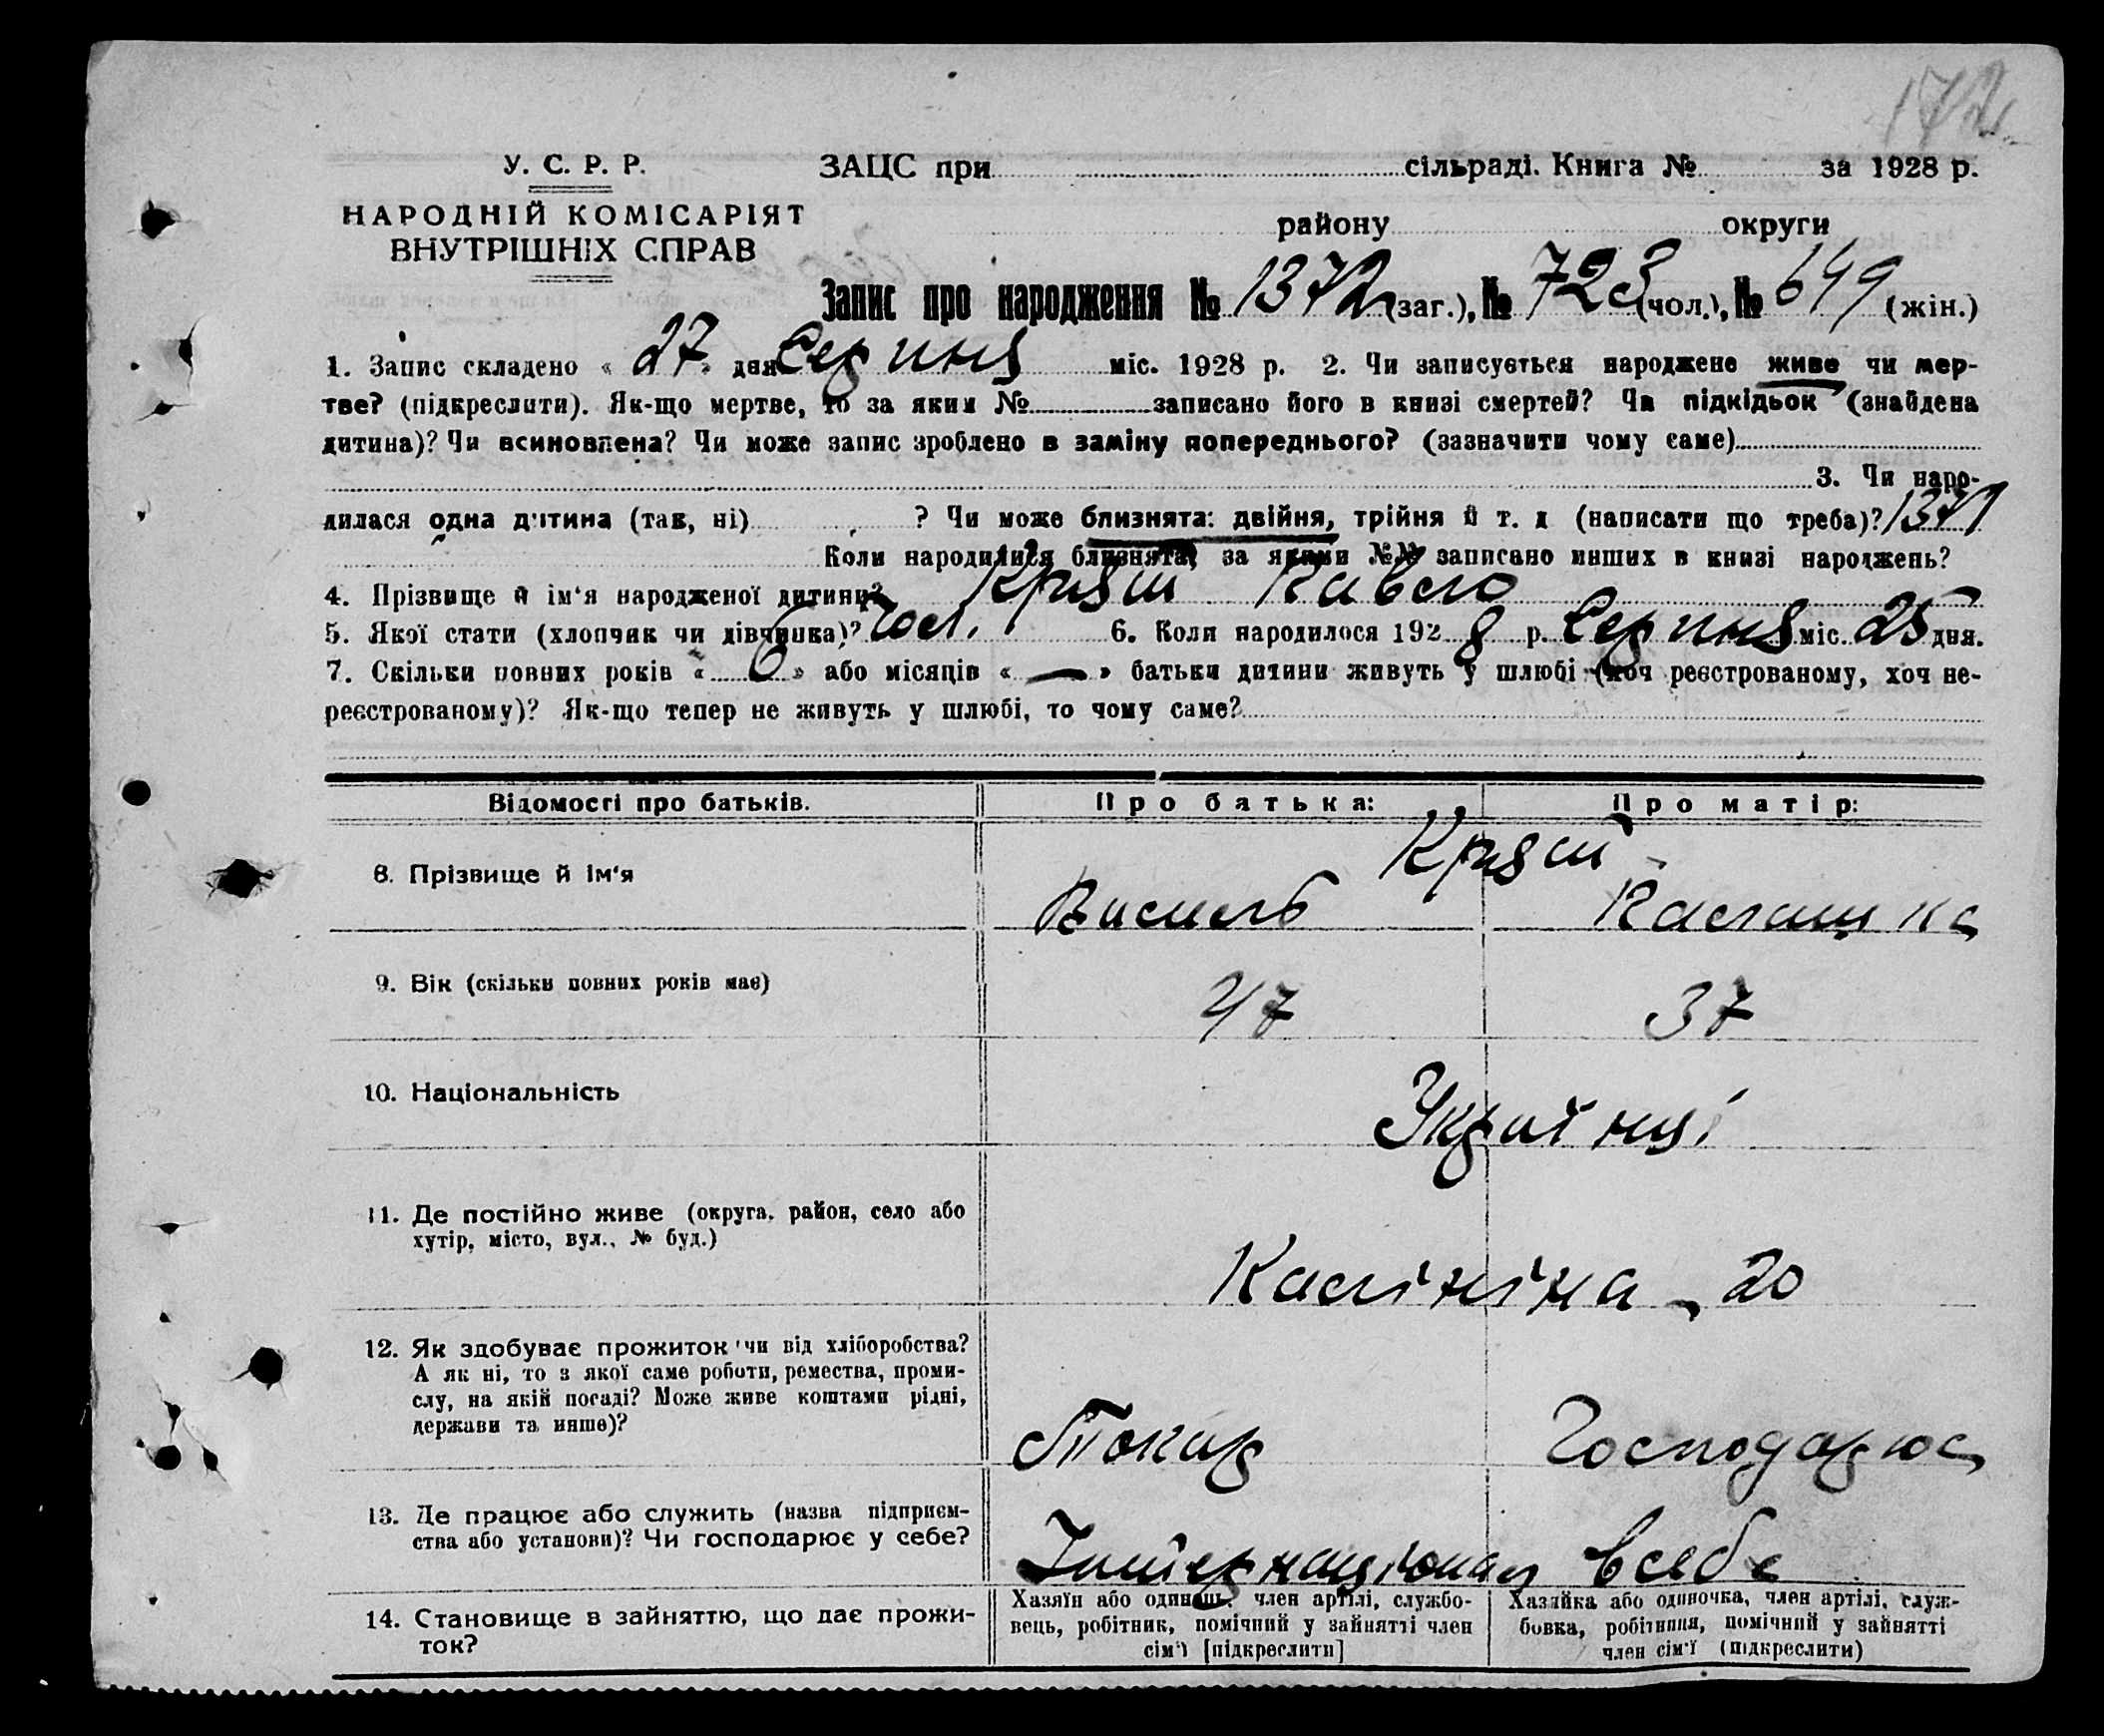 172
У. С. Р. Р.
НАРОДНІЙ КОМІСАРІЯТ
ВНУТРІШНІХ СПРАВ
ЗАЦС при сільраді. Книга № за 1928 р.
району округи
Запис про народження № 1372 (заг.), № 723 (чол.), № 649 (жін.)
1. Запис складено « 27 » дня Серпня міс. 1928 р. 2. Чи записується народжене живе чи мер-
тве? (підкреслити). Як-що мертве, то за яким № записано його в книзі смертей? Чи підкідьок (знайдена
дитина)? Чи всиновлена? Чи може запис зроблено в заміну попереднього? (зазначити чому саме)
3. Чи наро-
дилася одна дитина (так, ні) ? Чи може близнята: двійня, трійня й т. д (написати що треба)? 1371
Коли народилися близнята, за якими №№ записано инших в книзі народжень?
4. Прізвище й ім'я народженої дитини? Кряш Павло
5. Якої стати (хлопчик чи дівчинка)? Чол. 6. Коли народилося 1928 р. Серпня міс. 25 дня.
7. Скільки повних років « 6 » або місяців « — » батьки дитини живуть у шлюбі (хоч реєстрованому, хоч не-
реєстрованому)? Як-що тепер не живуть у шлюбі, то чому саме?
Відомості про батьків. Про батька: Про матір:
Кряш
8. Прізвище й ім'я Василь
9. Вік (скільки повних років має) 47 37
10. Національність Українці
11. Де постійно живе (округа, район, село або
хутір, місто, вул., № буд.)
Калініна, 20
12. Як здобуває прожиток чи від хліборобства?
А як ні, то з якої саме роботи, ремества, проми-
слу, на якій посаді? Може живе коштами рідні,
держави та инше)?
Токар Господарює
13. Де працює або служить (назва підприєм-
ства або установи)? Чи господарює у себе?
Інтернаціонал в себе
14. Становище в зайняттю, що дає прожи-
ток?
Хазяїн або одинець, член артілі, службо-
вець, робітник, помічний у зайнятті член
сім'ї [підкреслити]
Хазяйка або одиночка, член артілі, служ-
бовка, робітниця, помічний у зайнятті
член сім'ї (підкреслити)